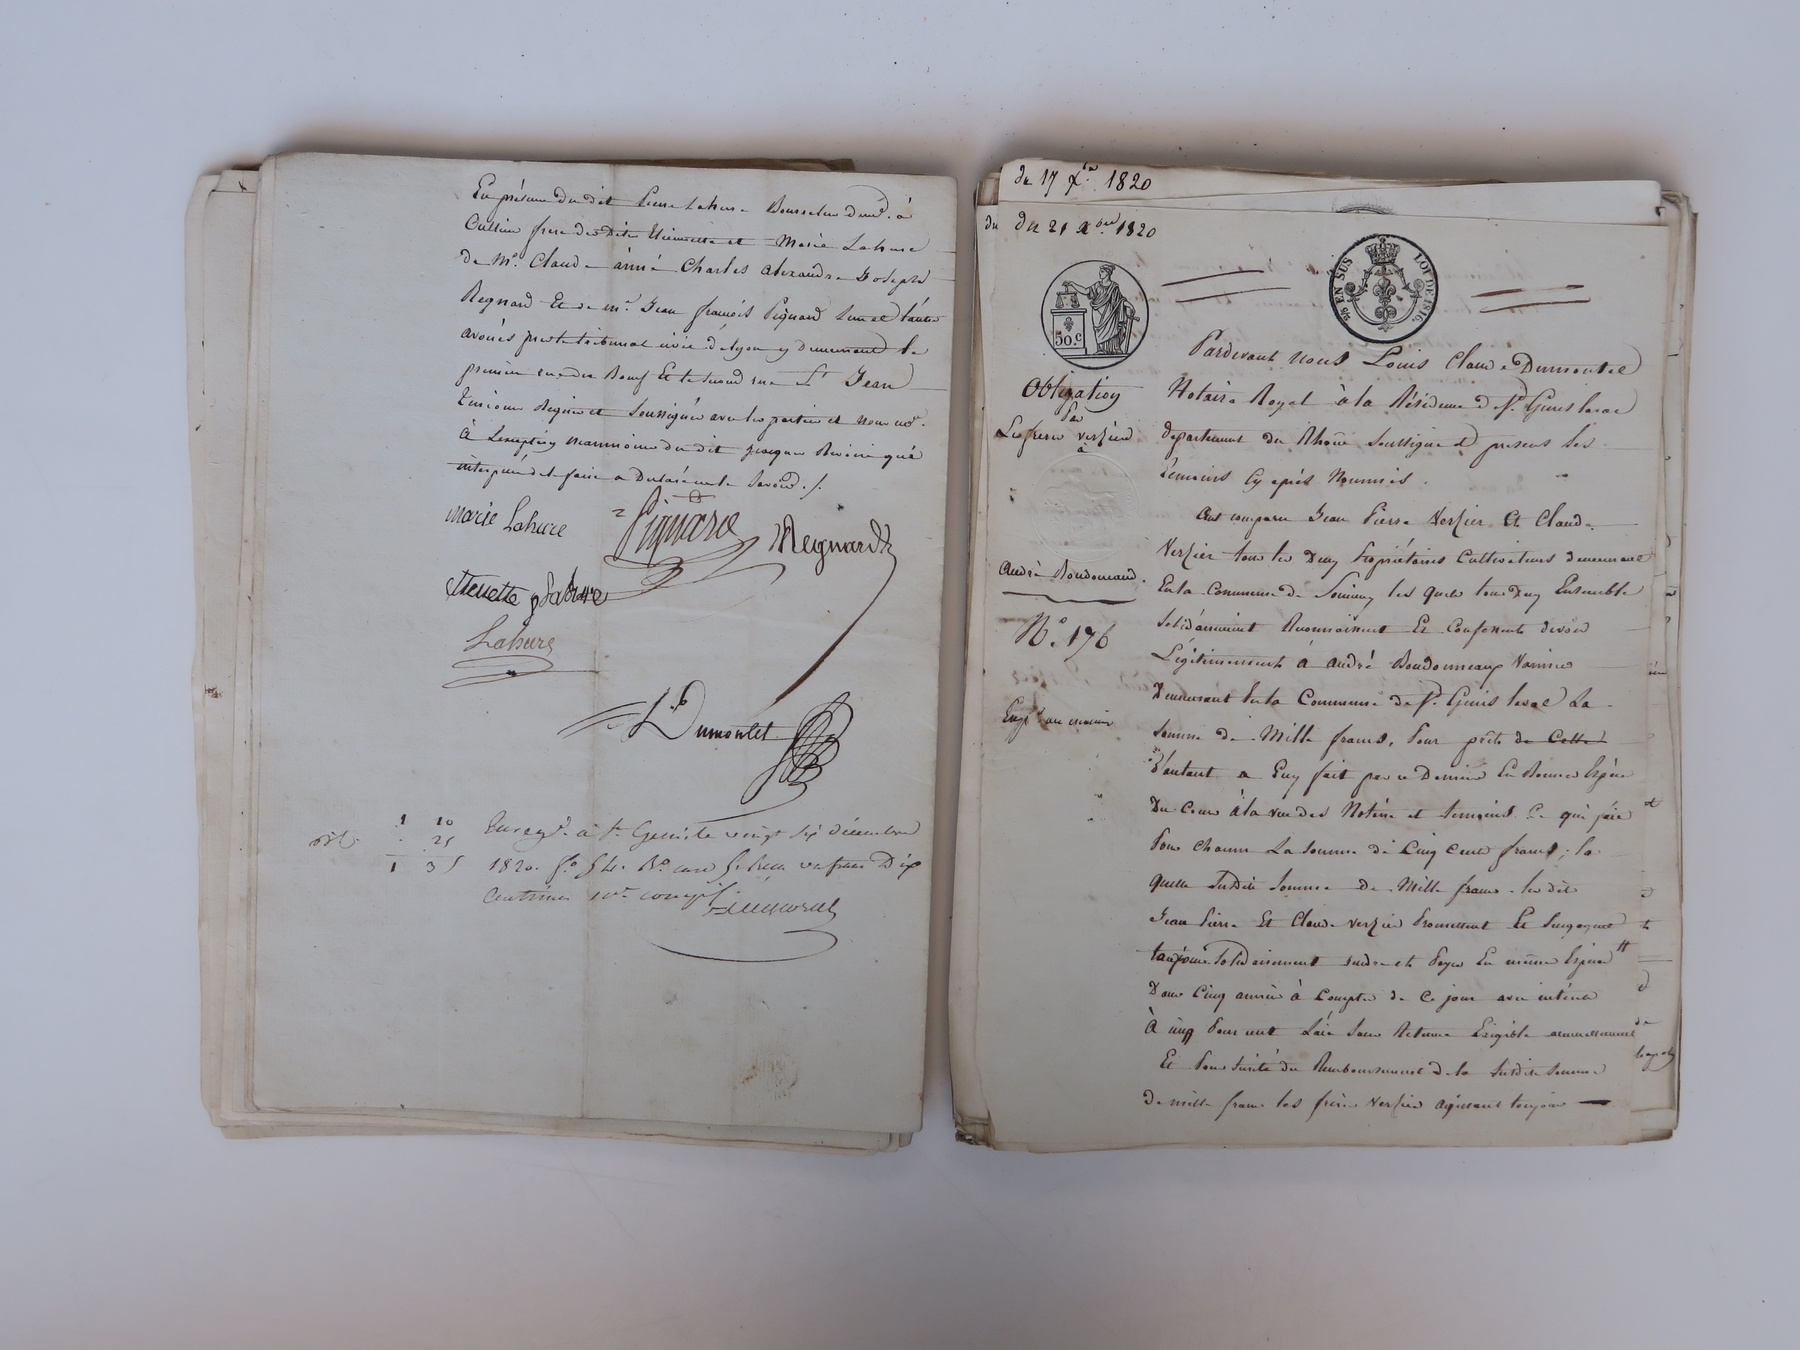 En présence du dit Pierre Lahure Bourrelier demt. à
Cullion frère des dites Etiennette et Marie Lahure
de Me. Claude aimé Charles Alexandre Joseph
Regnard Et de me. Jean françois Pignard tous et l'autre
avoués près le tribunal civil de Lyon y demeurant le
premier rue du Bœuf Et le second rue St Jean
témoins Requis et Soussignés avec les parties et nous not.
à l'exception du dit qui à
interpellé de le faire a Déclaré ne le Savoir ./.
marie Lahure
Pignard
Regnard
ttenette Lahure
Lahure
L. Dumortet
1 10
. 25
1 35
Enregt. à St. Genis le vingt six décembre
1820. fo. un franc Dix
Centimes
du 17 Xbre 1820
du
du 21 Xbre 1820
50.c
25 EN SUS
LOI DE 1816.
Obligation
Par
Les frères verzier
à
André Boudomeaux.
No. 176
Pardevant Nous Louis Claude Dumortet
Notaire Royal à la Résidence de St. Genis laval
département du Rhône Soussigné et présens les
témoins Cy après Nommés.
Ont comparu Jean Pierre Verzier Et Claude
Verzier tous les Deux Propriétaires Cultivateurs demeurant
En la Commune de les quels tous deux Ensemble
Solidairement Reconnoissent Et Confessent devoir
Légitimement à andré Boudomeaux
Demeurant En la Commune de St. Genis laval La
Somme de Mille francs, Pour prêt de Cette
D'autant a Eux fait par ce Dernier En Bonnes Espèces
Du Cours à la vue des Notaire et témoins Ce qui fait
Pour Chacun La Somme de Cinq Cent francs, la
quelle Susdite Somme de Mille francs les dits
Jean Pierre Et Claude Verzier Promettent Et S'engagent
toujours Solidairement rendre et Payer En même Espèces
Dans Cinq années à Compter de Ce jour avec intérêt
à cinq Pour cent Sans Retenue Exigible annuellement
Et Pour Sûreté du Remboursement de la Susdite Somme
de mille francs les frères Verzier agissant toujours